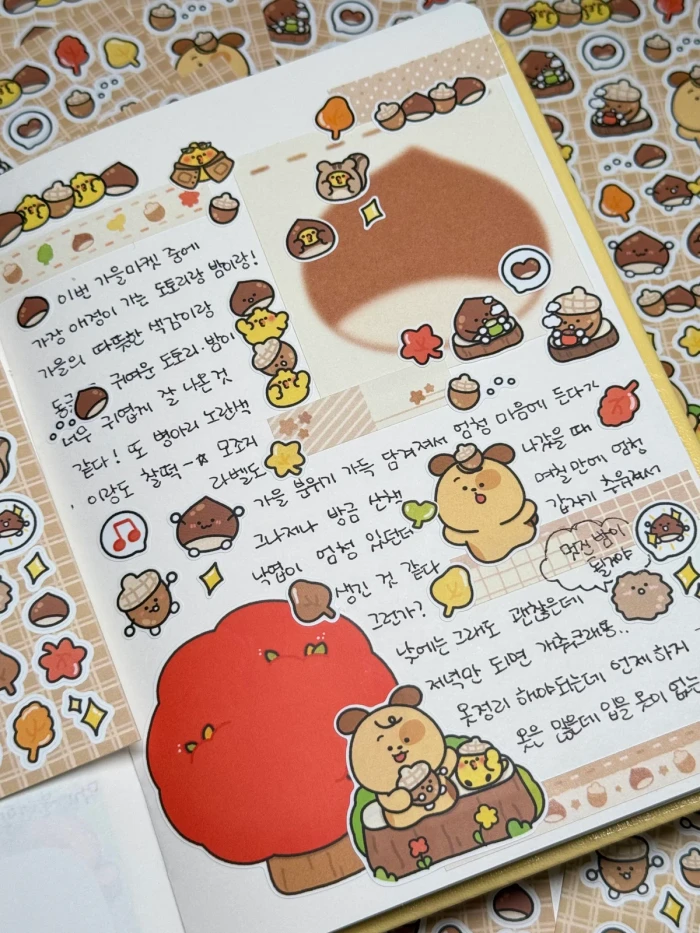 이번 가을마켓 중에
가장 애정이 가는 도토리랑 밤이랑!
가을의 따뜻한 색감이랑
귀여운 도토리·밤이
너무 귀엽게 잘 나온것
같다! 또 병아리 노란색
이랑도 찰떡-☆ 모조지
라벨도
가을 분위기 가득 담겨져서 엄청 마음에 든다가
그나저나 방금 산책 나갔을 때
낙엽이 엄청 있던데 며칠만에 엄청
생긴 것 같다 갑자기 추워져서
그런가?
멋진 밤이
될거야
낮에는 그래도 괜찮은데
저녁만 되면 개춥크래용..
옷정리 해야되는데 언제 하지
옷은 많은데 입을 옷이 없는